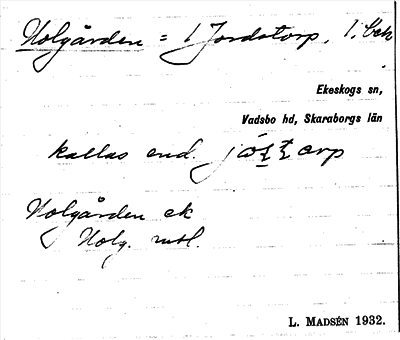 Holgården = 1 Jordstorp, 1.
Ekeskogs sn,
Vadsbo hd, Skaraborgs län
kallas end.
Holgården ek
Holg. mtl.
L. MADSÉN 1932.